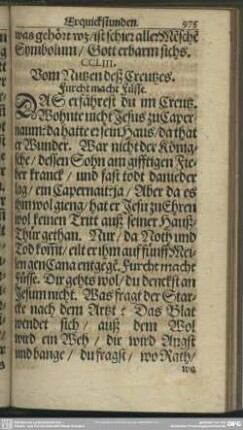 Erquickstunden. 975
was gehört wz/ist schier aller Mēschē
Symbolum/ Gott erbarm sichs.
CCLIII.
Vom Nutzen deß Creutzes.
Furcht macht Füsse.
DAS erfährest du im Creutz.
Wohnte nicht Jesus zu Caper-
naum: da hatte er sein Haus/ da that
er Wunder. War nicht der König-
sche/ dessen Sohn am gifftigen Fie-
ber kranck/ und fast todt danieder
lag/ ein Capernaitza/ Aber da es
ihm wol gieng/ hat er Jesu zu Ehren
wol keinen Tritt auß seiner Hauß-
Thür gethan. Nur/ da Noth und
Tod komt/ eilt er ihm auf fünff Mei-
len gen Cana entgegē. Furcht macht
Füsse. Dir gehts wol/ du denckst an
Jesum nicht. Was fragt der Star-
cke nach dem Artzt? Das Blat
wendet sich/ auß dem Wol
wird ein Weh/ dir wird Angst
und bange/ du fragst/ wo Rath/
wo